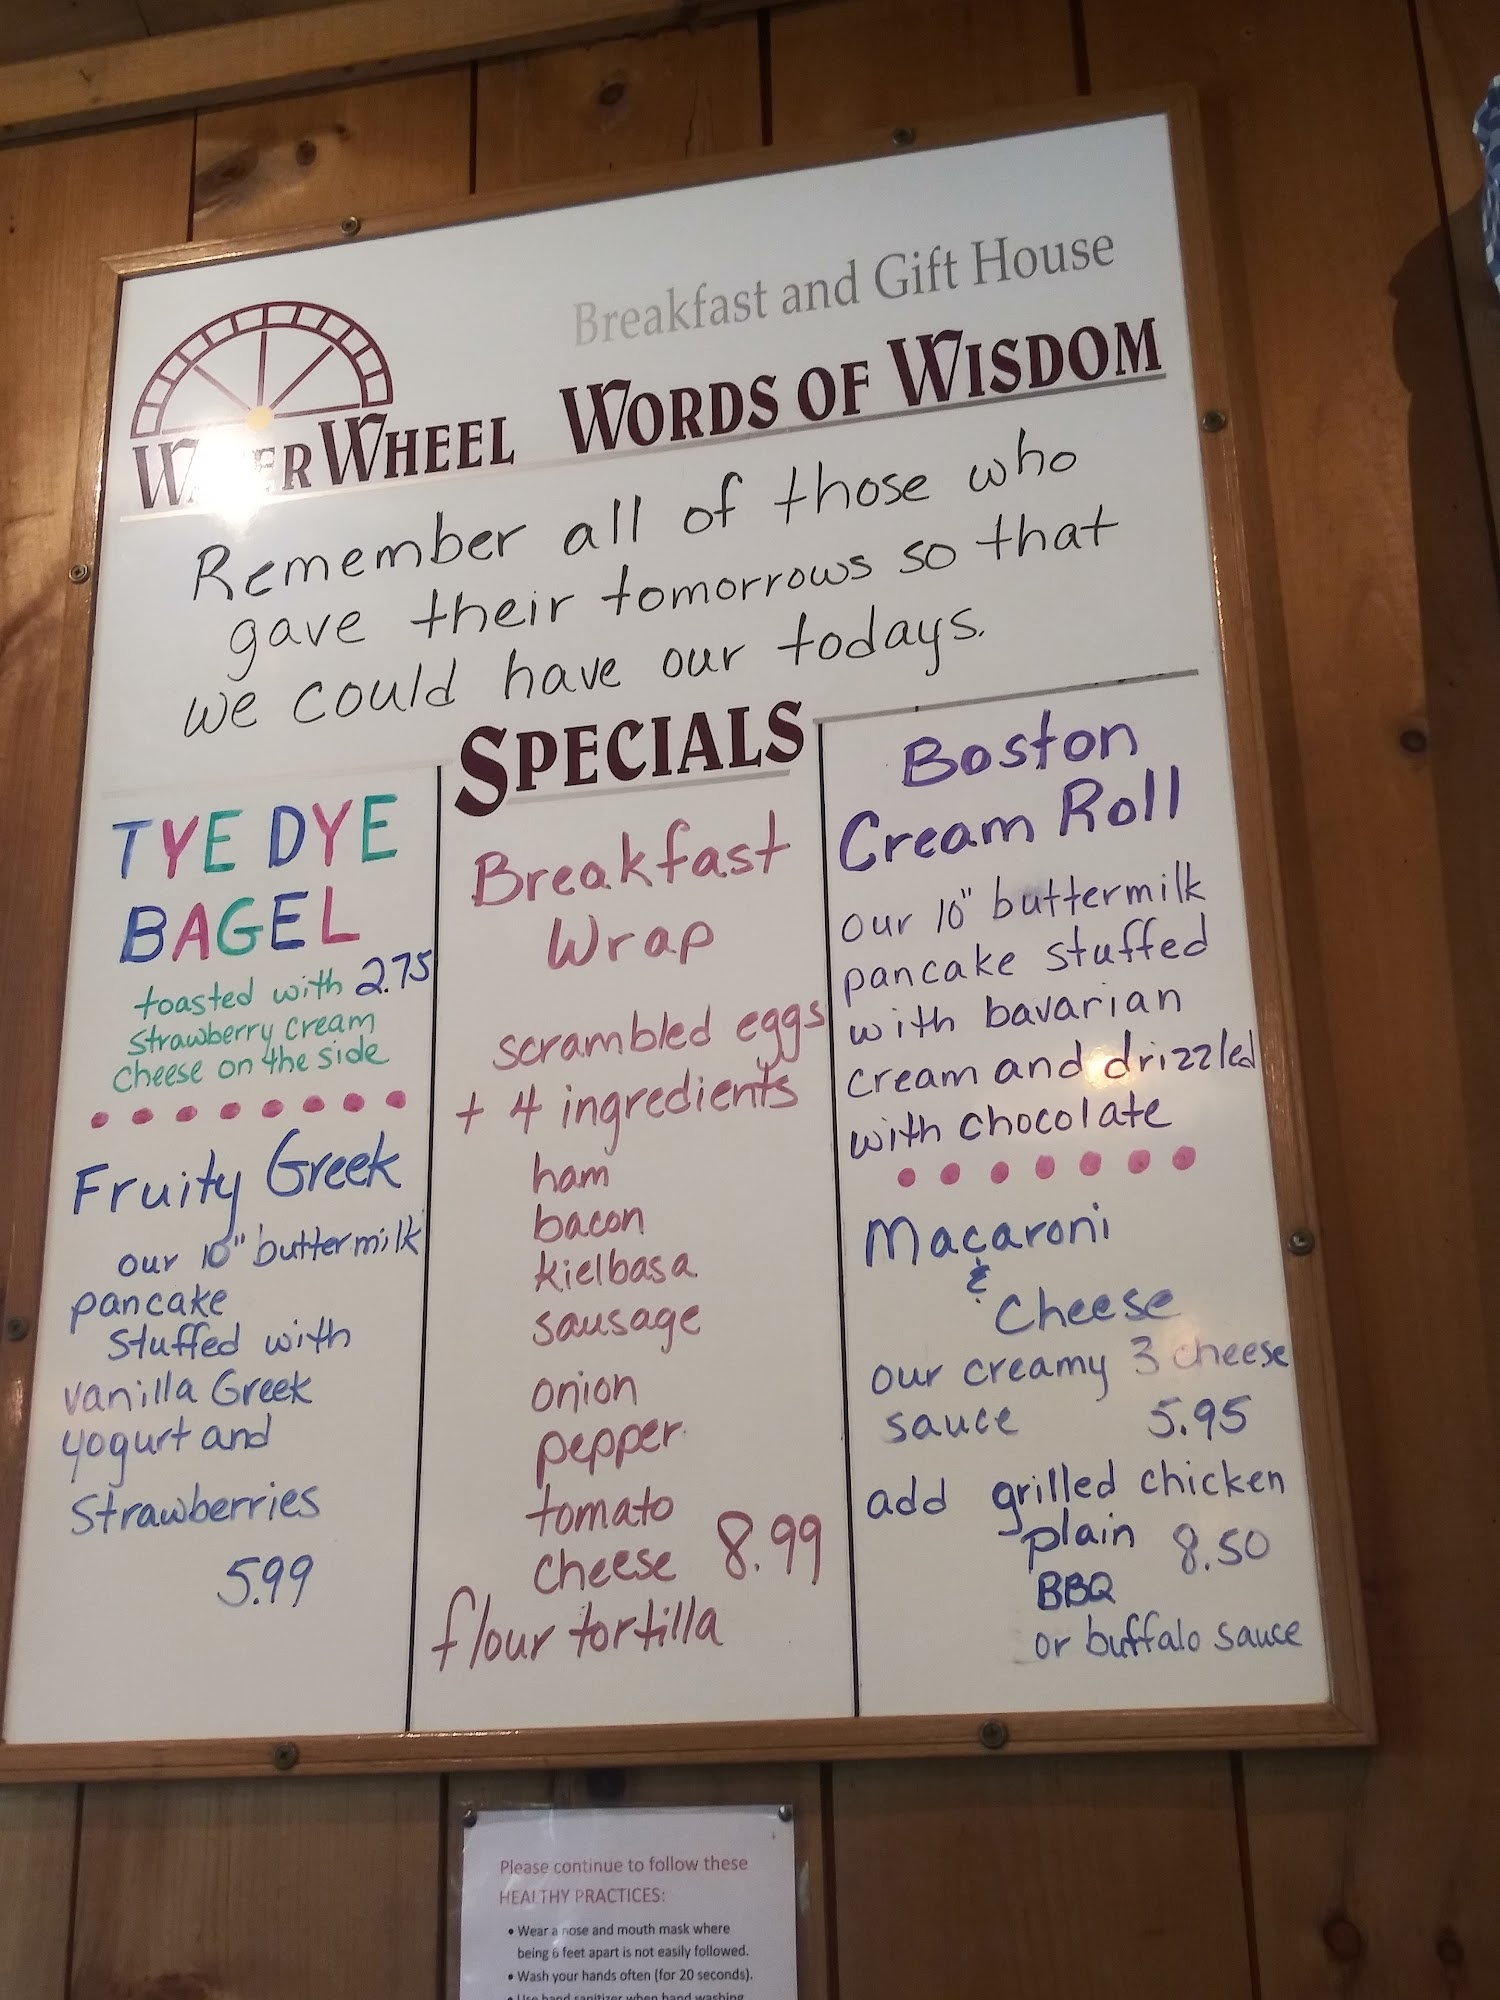 Breakfast and Gift House
WATER WHEEL WORDS OF WISDOM
Remember all of those who
gave their tomorrows so that
we could have our todays.
SPECIALS
TYE DYE
BAGEL
toasted with 2.75
strawberry cream
cheese on the side
Fruity Greek
our 10" buttermilk
pancake
stuffed with
vanilla Greek
yogurt and
strawberries
5.99
Breakfast
Wrap
scrambled eggs
+ 4 ingredients
ham
bacon
kielbasa
sausage
onion
pepper
tomato
cheese 8.99
flour tortilla
Boston
Cream Roll
our 10" buttermilk
pancake stuffed
with bavarian
cream and drizzled
with chocolate
Macaroni
&
Cheese
our creamy 3 cheese
sauce 5.95
add grilled chicken
plain 8.50
BBQ
or buffalo sauce
Please continue to follow these
HEALTHY PRACTICES:
• Wear a nose and mouth mask where
being 6 feet apart is not easily followed.
• Wash your hands often (for 20 seconds).
• Use hand sanitizer when hand washing